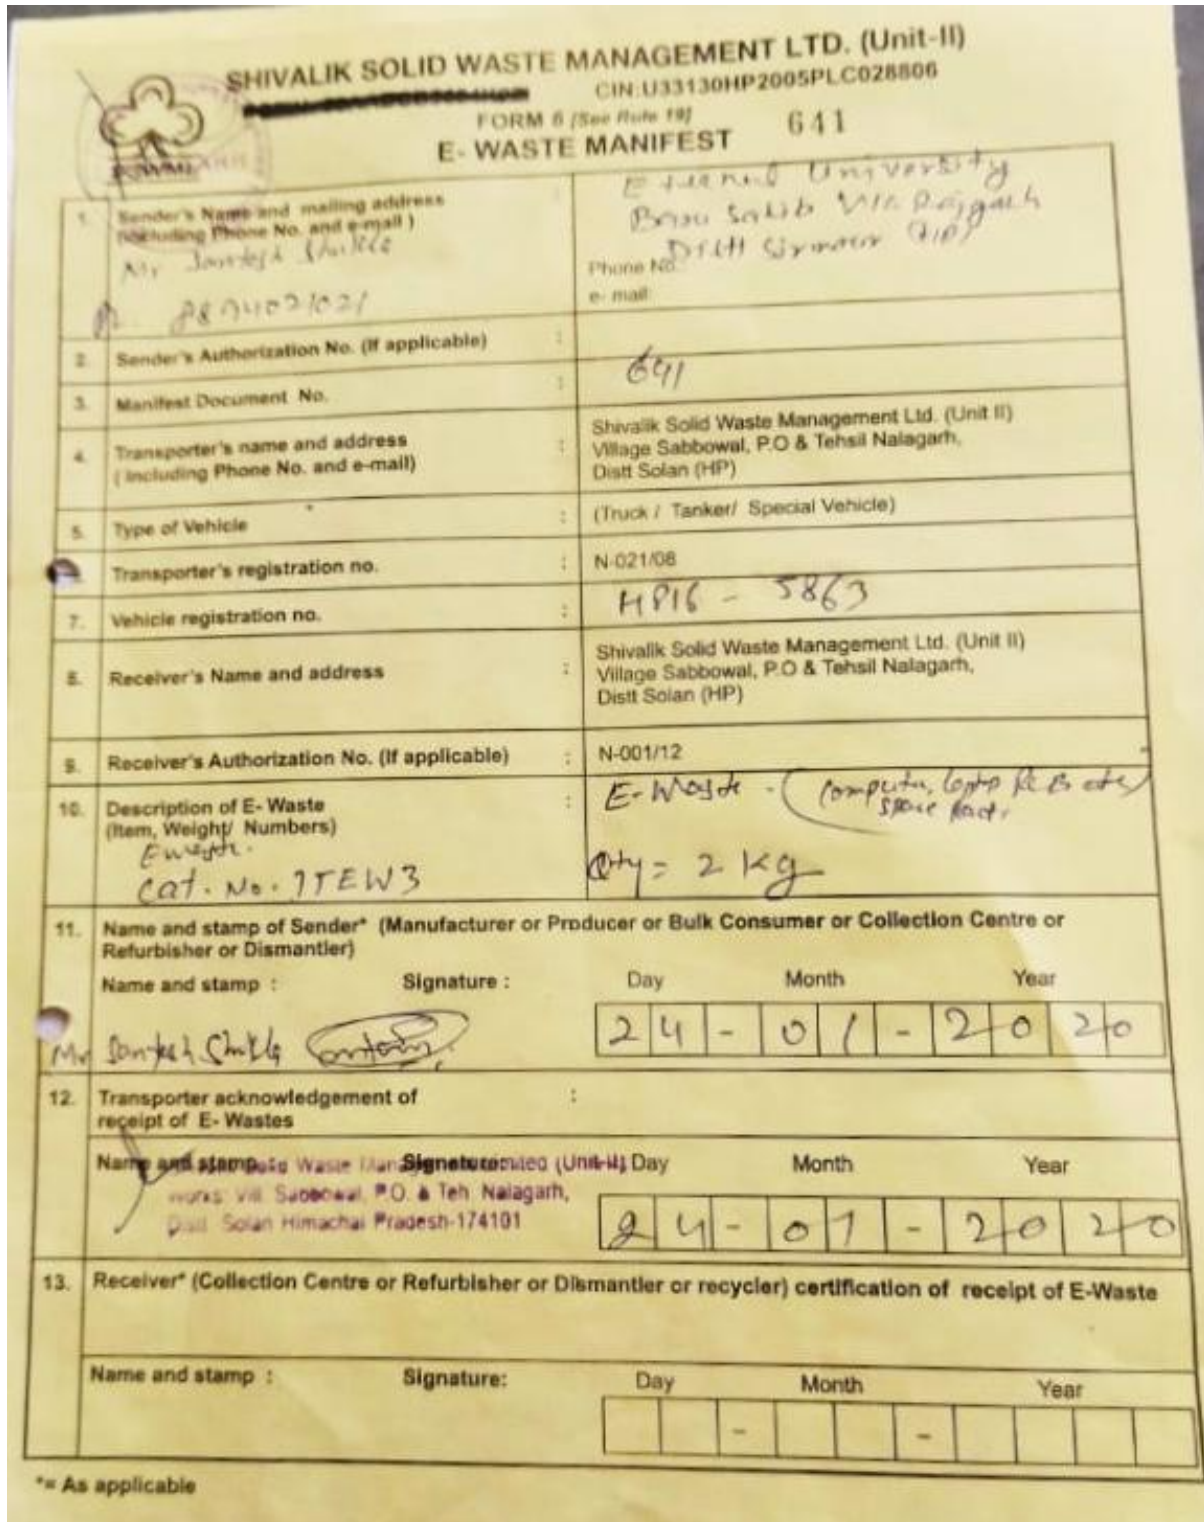 SHIVALIK SOLID WASTE MANAGEMENT LTD. (Unit-II)
CIN:U33130HP2005PLC028806
FORM 6 (See Rule 19)
641
E- WASTE MANIFEST
1. Sender's Name and mailing address
(Including Phone No. and e-mail )
Mr Santesh Shukla
Eternal University
Baru Sahib Via Rajgarh
Distt Sirmour (HP)
Phone No.
e- mail:
2. Sender's Authorization No. (If applicable) :
3. Manifest Document No. : 641
4. Transporter's name and address
( Including Phone No. and e-mail) :
Shivalik Solid Waste Management Ltd. (Unit II)
Village Sabbowal, P.O & Tehsil Nalagarh,
Distt Solan (HP)
5. Type of Vehicle : (Truck / Tanker/ Special Vehicle)
Transporter's registration no. : N-021/08
7. Vehicle registration no. : HP16 - 5863
8. Receiver's Name and address :
Shivalik Solid Waste Management Ltd. (Unit II)
Village Sabbowal, P.O & Tehsil Nalagarh,
Distt Solan (HP)
9. Receiver's Authorization No. (If applicable) : N-001/12
10. Description of E- Waste :
(Item, Weight/ Numbers)
Cat. No. ITEW3
E-Waste - (Computer,
Qty = 2 Kg
11. Name and stamp of Sender* (Manufacturer or Producer or Bulk Consumer or Collection Centre or
Refurbisher or Dismantler)
Name and stamp : Signature : Day Month Year
Mr Santesh Shukla
24 - 01 - 2020
12. Transporter acknowledgement of :
receipt of E- Wastes
Name and stamp Signature: Day Month Year
Waste Limited (Unit-II)
Works Vill Sabbowal, P.O. & Teh. Nalagarh,
Distt. Solan Himachal Pradesh-174101
24 - 01 - 2020
13. Receiver* (Collection Centre or Refurbisher or Dismantler or recycler) certification of receipt of E-Waste
Name and stamp : Signature: Day Month Year
- -
*= As applicable